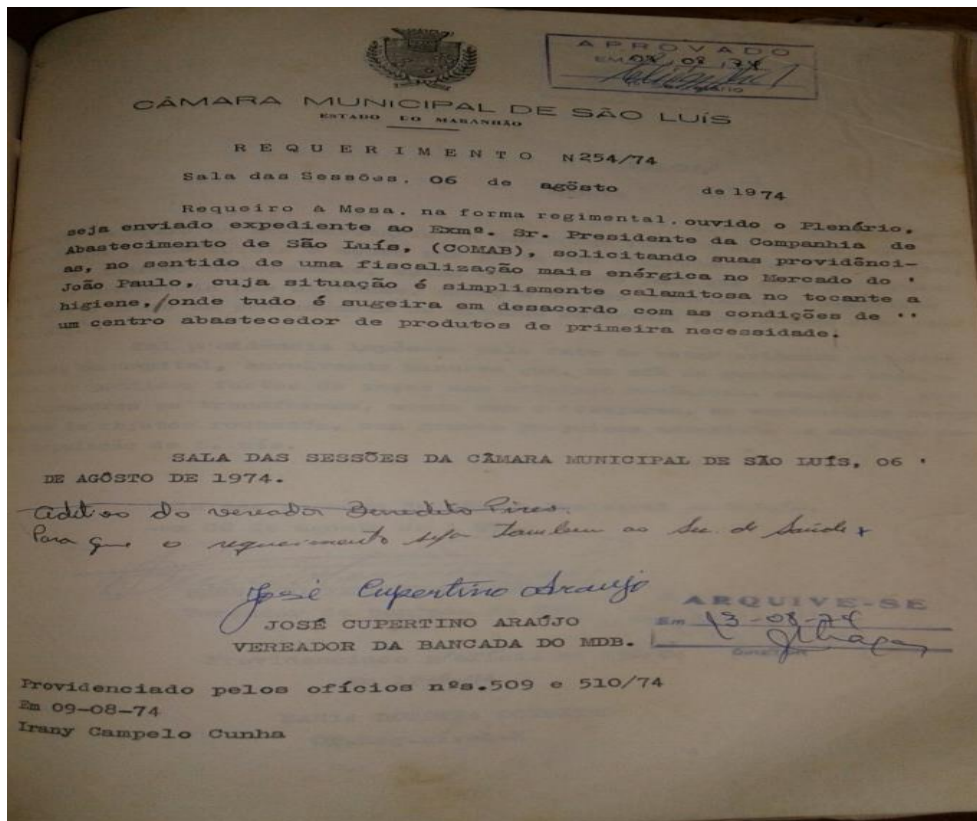 APROVADO
EM 08 / 08 / 74
CÂMARA MUNICIPAL DE SÃO LUÍS
ESTADO DO MARANHÃO
REQUERIMENTO N254/74
Sala das Sessões, 06 de agôsto de 1974
Requeiro à Mesa, na forma regimental, ouvido o Plenário,
seja enviado expediente ao Exmº. Sr. Presidente da Companhia de
Abastecimento de São Luís, (COMAB), solicitando suas providênci-
as, no sentido de uma fiscalização mais enérgica no Mercado do '
João Paulo, cuja situação é simpliamente calamitosa no tocante a
higiene, onde tudo é sugeira em desacordo com as condições de ''
um centro abastecedor de produtos de primeira necessidade.
SALA DAS SESSÕES DA CÂMARA MUNICIPAL DE SÃO LUÍS, 06 '
DE AGÔSTO DE 1974.
aditivo do vereador Benedito Pires.
Para que o requerimento seja tambem ao Sec. de Saúde
José Cupertino Araujo
JOSÉ CUPERTINO ARAÚJO
VEREADOR DA BANCADA DO MDB.
ARQUIVE-SE
Em 13-08-74
DIRETOR
Providenciado pelos ofícios nºs.509 e 510/74
Em 09-08-74
Irany Campelo Cunha